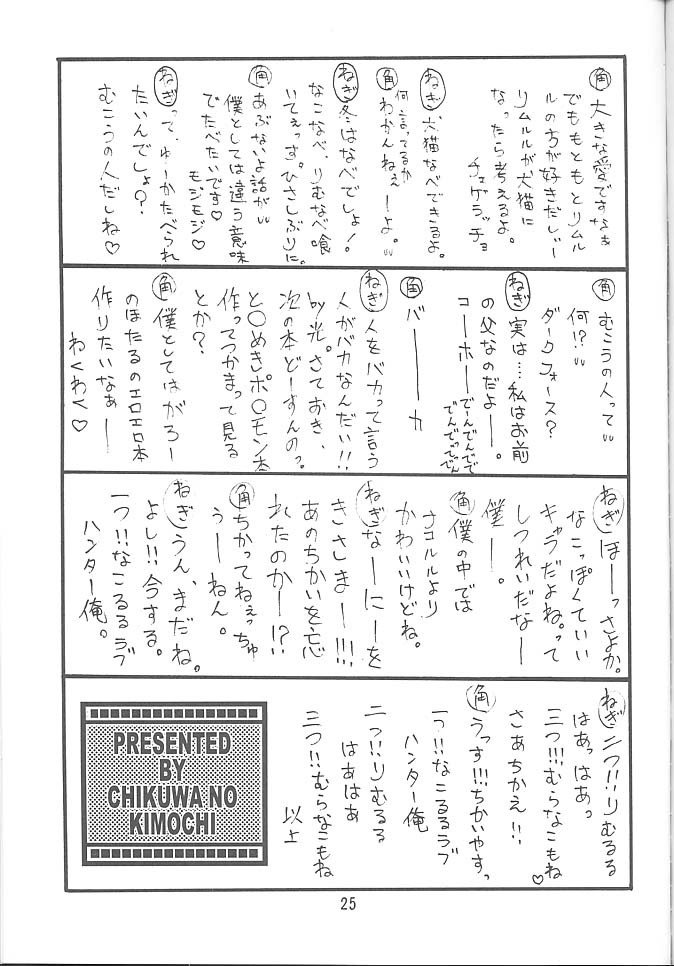 角 大きな愛ですなぁ
でももともとリムル
ルの方が好きだしぃー
リムルルが犬猫に
なったら考えるよ。
チェゲラッチョ
ねぎ 犬猫なべできるよ。
角 何言ってるか
わかんねぇーよ。
ねぎ 冬はなべでしょ!
なこなべ、りむなべ喰
いてぇっす。ひさしぶりに。
角 あぶないよ話が
僕としては違う意味
でたべたいです♡
モジモジ♡
ねぎ って、ゆーかたべられ
たいんでしょ?
むこうの人だしね♡
角 むこうの人って
何!?
ダークフォース?
ねぎ 実は…私はお前
の父なのだよー。
コーホー でーんでんでんで
でんでっででん
角 バーーーカ
ねぎ 人をバカって言う
人がバカなんだい!!
by光。さておき、
次の本どーすんの?
と○めきポ○モン本
作ってつかまって見る
とか?
角 僕としてはがろー
のほたるのエロエロ本
作りたいなぁー
わくわく♡
ねぎ ほーっさよか。
なこっぽくていい
キャラだよね。って
しつれいだなー
僕ー。
角 僕の中では
ナコルルより
かわいいけどね。
ねぎ なーにーを
きさしまー!!!
あのちかいを忘
れたのかー!?
角 ちかってねぇっちゅ
うーねん。
ねぎ うん、まだね。
よし!!今する。
一つ!!なこるるラブ
ハンター俺。
ねぎ 二つ!!りむるる
はあっはぁっ
三つ!!!むらなこもね♡
さあちかえ!!
角 うっす!!!ちかいやすっ
一つ!!なこるるラブ
ハンター俺
二つ!!りむるる
はあはあ
三つ!!むらなこもね
以上
PRESENTED
BY
CHIKUWA NO
KIMOCHI
25